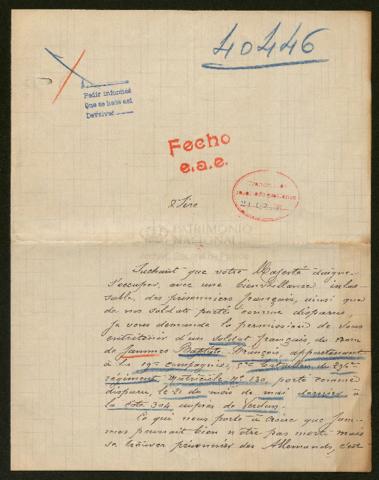 40446
Pedir informes
Que se hate así
Devolver
Fecho
e.a.e.
Sire
PATRIMONIO
NACIONAL
Sachant que votre Majesté daigne
s'occuper, avec une bienveillance inlas-
sable, des prisonniers français, ainsi que
de nos soldats portés comme disparus
je vous demande la permission de vous
entretenir d'un soldat français, du nom
de Jammes Baptiste François, appartenant
à la 19e compagnie, 5e bataillon du
régiment Matricule porté comme
disparu, le 21 du mois de mai dernier à
la Côte 304 auprès de Verdun.
Ce qui nous porte à croire que Jam-
mes pourrait bien n'être pas mort mais
se trouver prisonnier des Allemands, c'est